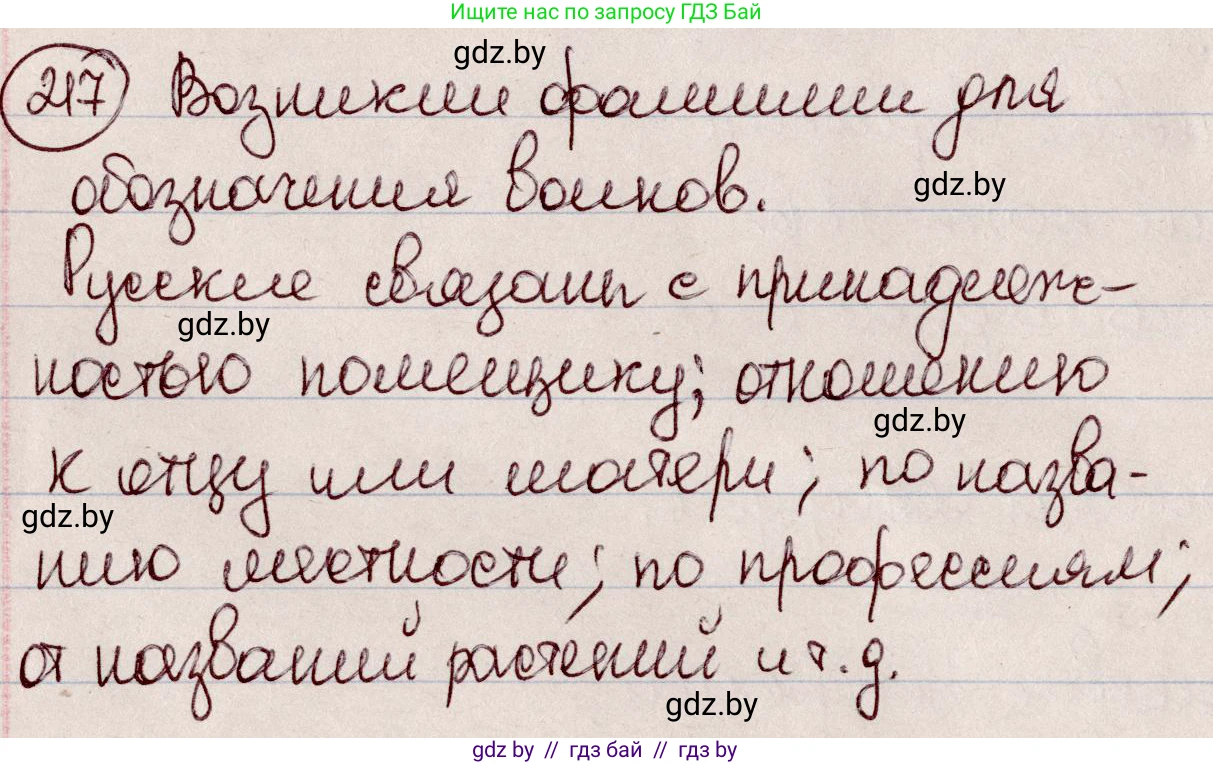 Ищите нас по запросу ГДЗ Бай
gdz.by
217 Возникли фамилии для
обозначения воинов.
gdz.by
Русские связаны с принадлеж-
gdz.by
ностью помещику; отношению
gdz.by
к отцу или матери; по назва-
gdz.by
нию местности; по профессиям;
от названий растений и т. д.
gdz.by
gdz by // гдз бай // гдз by